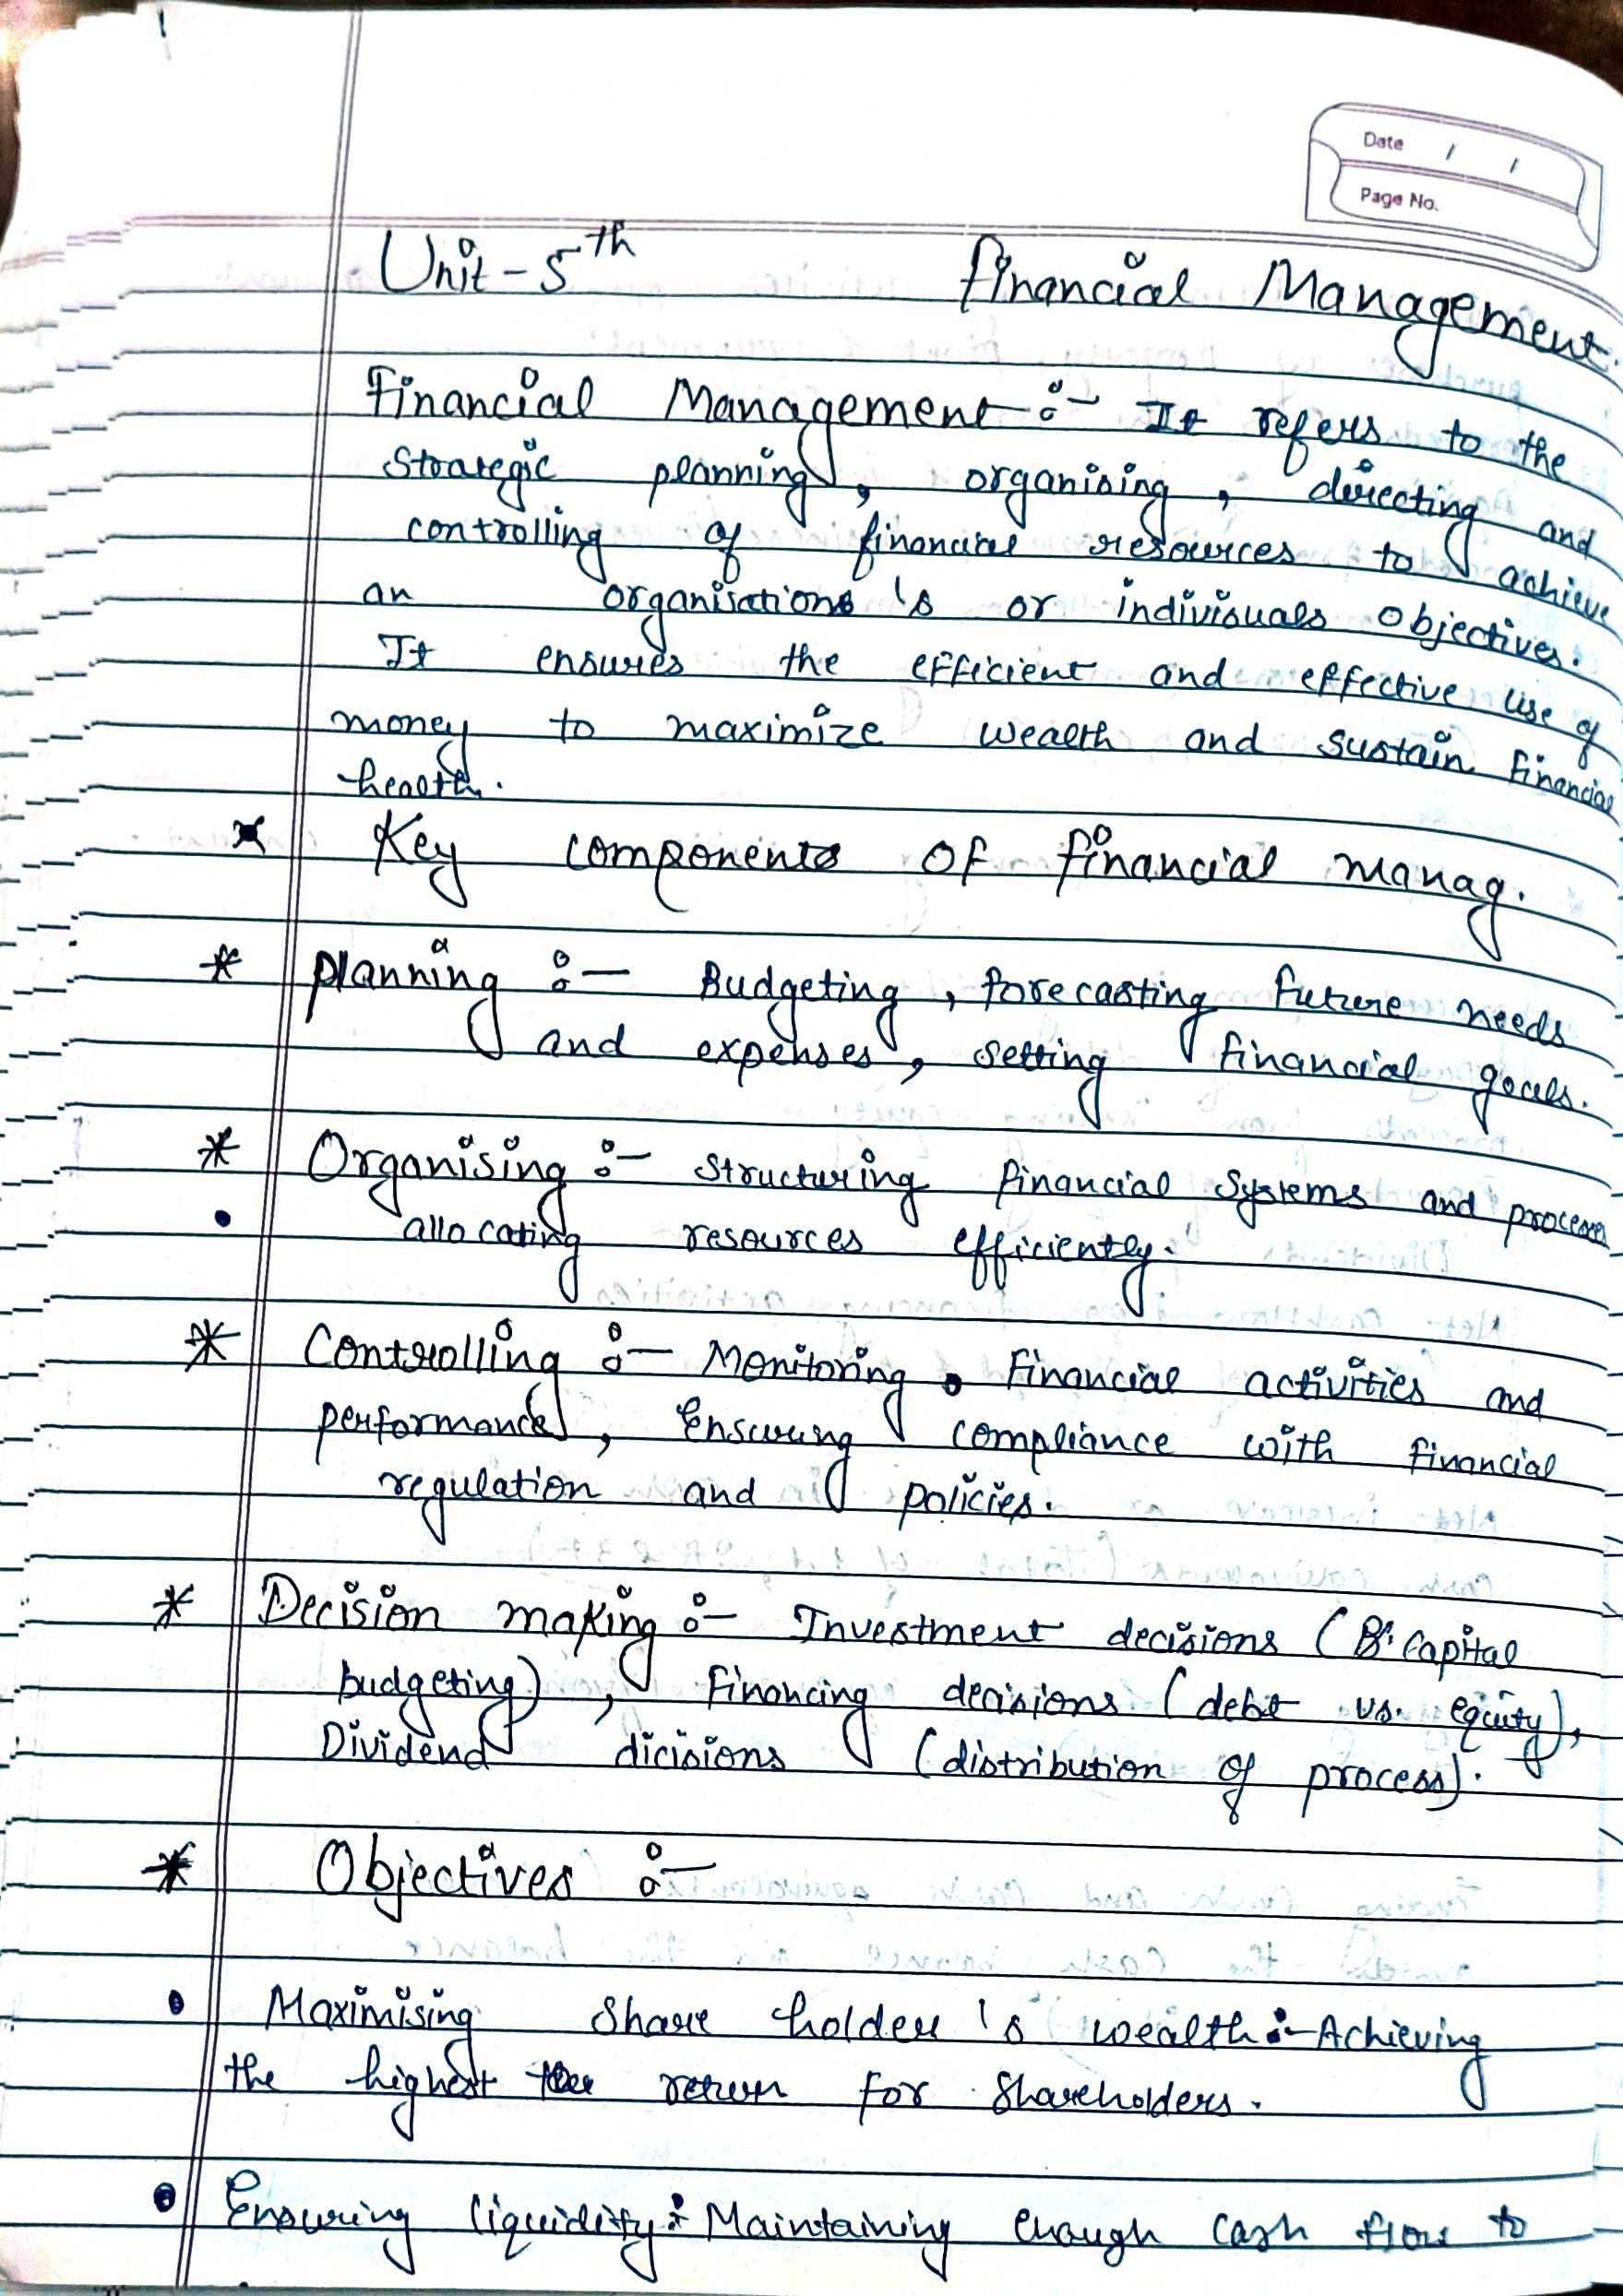 Date / /
Page No.
Unit-5th Financial Management.
Financial Management :- It refers to the
Strategic planning, organising, directing and
controlling of financial resources to achieve
an organisations's or indivisuals objectives.
It ensures the efficient and effective use of
money to maximize wealth and sustain financial
health.
* Key components of financial manag.
* planning :- Budgeting, forecasting future needs
and expenses, setting financial goals.
* Organising :- Structuring financial systems and processes
• allocating resources efficiently.
* Controlling :- Monitoring financial activities and
performance, Ensuring compliance with financial
regulation and policies.
* Decision making :- Investment decisions ( Capital
budgeting), Financing decisions (debt vs. equity),
Dividend dicisions (distribution of process).
* Objectives :-
• Maximising Share holder's wealth :- Achieving
the highest return for Shareholders.
• Ensuring liquidity :- Maintaining enough cash flow to